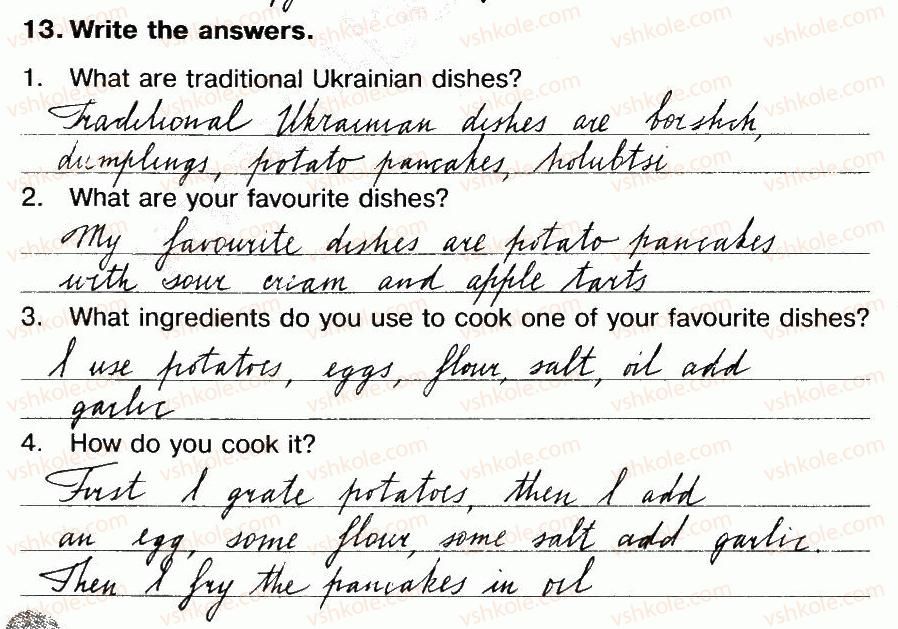 13. Write the answers.
1. What are traditional Ukrainian dishes?
Traditional Ukrainian dishes are borshch,
dumplings, potato pancakes, holubtsi
2. What are your favourite dishes?
My favourite dishes are potato pancakes
with sour cream and apple tarts
3. What ingredients do you use to cook one of your favourite dishes?
I use potatoes, eggs, flour, salt, oil add
garlic
4. How do you cook it?
First I grate potatoes, then I add
an egg, some flour, some salt add garlic.
Then I fry the pancakes in oil
vshkole.com